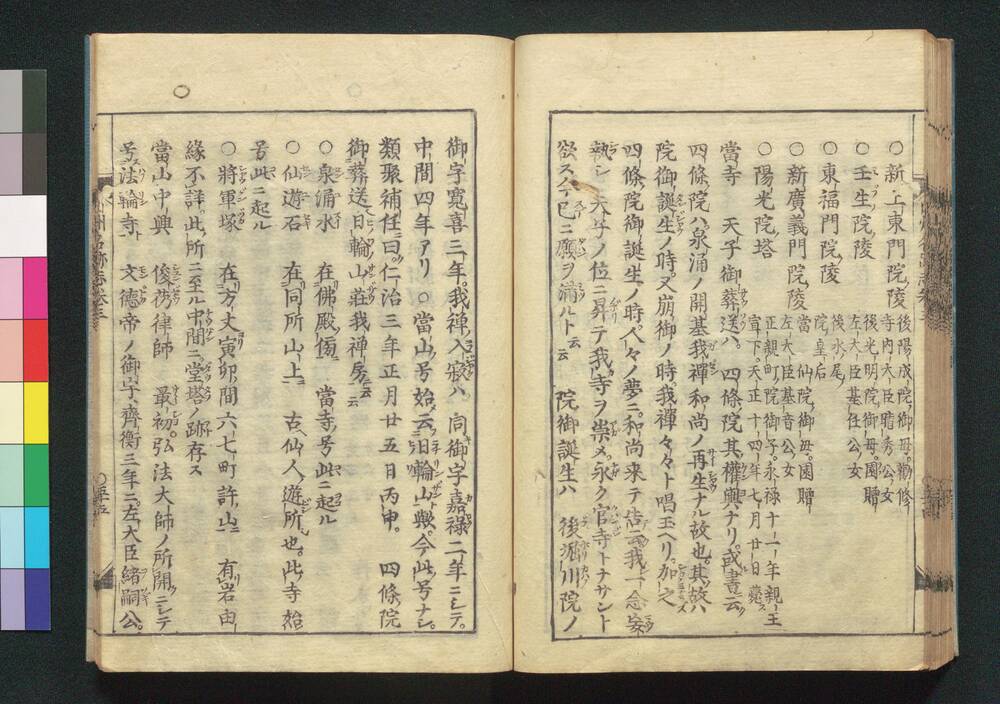 ○新上東門院陵 後陽成院御母。勸修寺内大臣晴秀公女
○壬生院陵 後光明院御母。園贈左大臣基任公女
○東福門院陵 後水尾院皇后
○新廣義門院陵 當仙院御母。園贈左大臣基音公女
○陽光院塔 正親町院御子。永禄十一年親王宣下。天正十四年七月廿日薨ス
當寺 天子御葬送ハ。四條院其權輿ナリ。或書ニ云
四條院ハ泉涌ノ開基我禪和尚ノ再生ナル故也。其故ハ
院御誕生ノ時。又崩御ノ時。我禪々々ト唱玉ヘリ。加之
四條院御誕生ノ時。人々ノ夢ニ。和尚来テ告云。我一念妄
執シ 天子ノ位ニ昇テ我寺ヲ崇メ。永ク官寺トナサント
欲スノ今已ニ願ヲ滿ルト云云 院御誕生ハ 後堀川院ノ
御宇寛喜三年。我禪入寂ハ 同御宇嘉禄二年ニシテ。
中間四年アリ ○當山号始云日輪山與。今此号ナシ。
類聚補任曰。仁治三年正月廿五日丙申。 四條院
御葬送日輪山莊我禪房云云
○泉涌水 在佛殿傍 當寺号此ニ起ル
○仙遊石 在同所山上 古仙人遊所也。此寺始
号此ニ起ル
○將軍塚 在方丈寅卯間六七町許山 有岩由
緣不詳。此所ニ至ル中間ニ堂塔ノ跡存ス
當山中興 俊芿律師 最初弘法大師ノ所開ニシテ
号法輪寺 文德帝ノ御宇。齊衡三年ニ。左大臣緒嗣公。